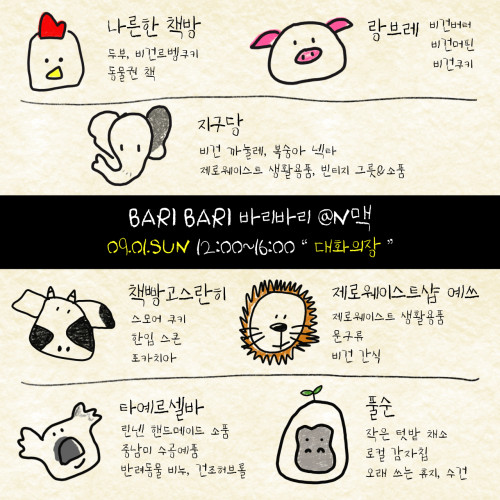 나른한 책방
두부, 비건르뱅쿠키
동물권 책
랑브레
비건버터
비건머핀
비건쿠키
지구당
비건 까눌레, 복숭아 넥타
제로웨이스트 생활용품, 빈티지 그릇&소품
BARI BARI 바리바리 @N맥
09.01.SUN 12:00~16:00 “ 대화의장 ”
책빵고스란히
스모어 쿠키
한입 스콘
포카치아
제로웨이스트샵 예쓰
제로웨이스트 생활용품
문구류
비건 간식
타예르셀바
린넨 핸드메이드 소품
중남미 수공예품
반려동물 비누, 건조허브롤
풀순
작은 텃밭 채소
로컬 감자칩
오래 쓰는 휴지, 수건